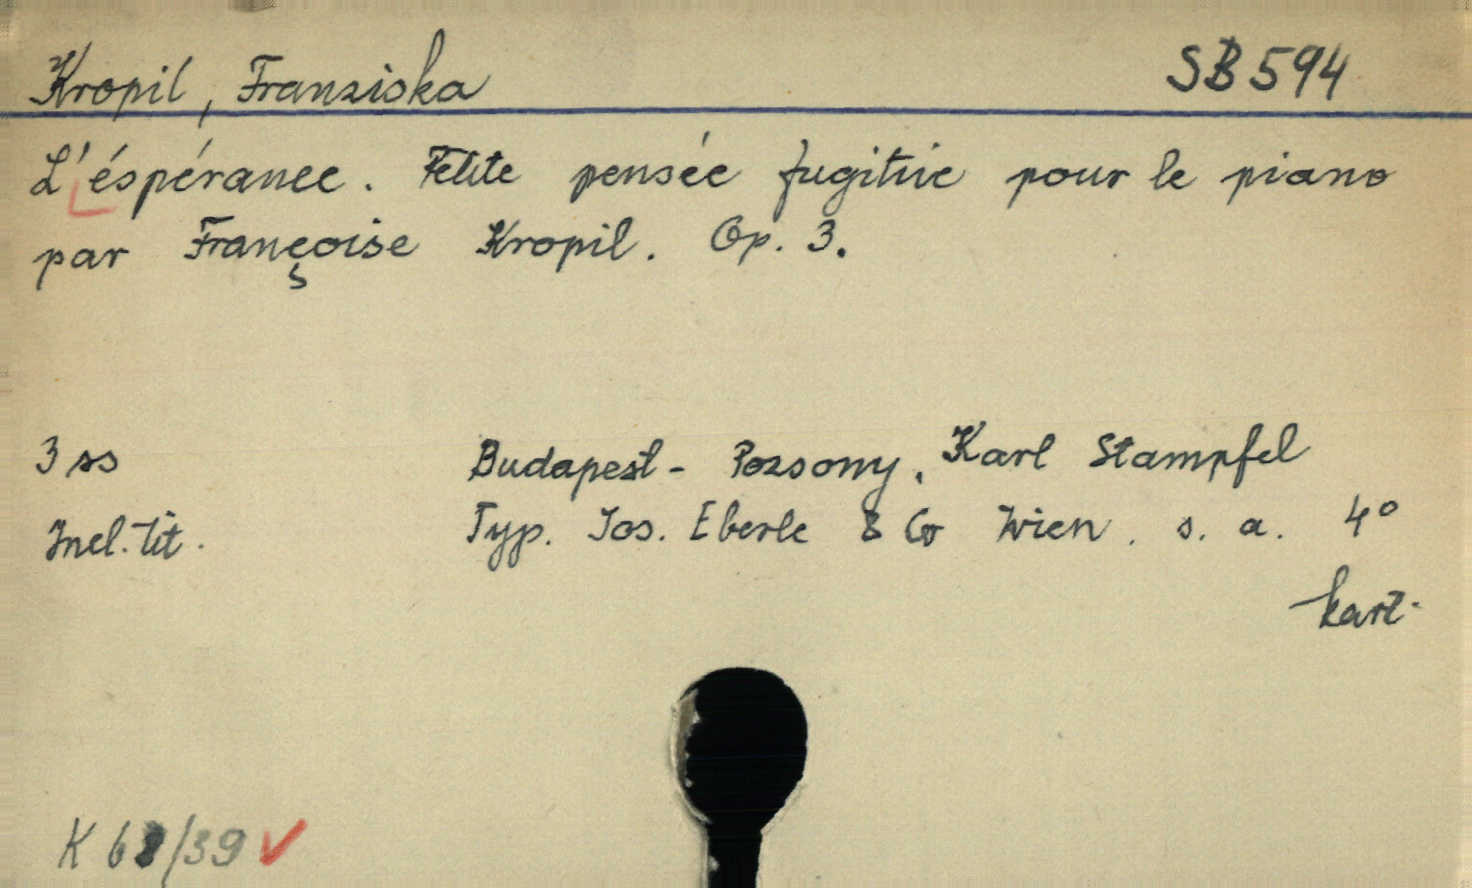 Kropil, Franziska SB 594
L'éspérance. Petite pensée fugitive pour le piano
par Françoise Kropil. Op. 3.
3 ss Budapest - Pozsony, Karl Stampfel
Incl. tit. Typ. Jos. Eberle & Co Wien. s. a. 4°
kart.
K 68/39